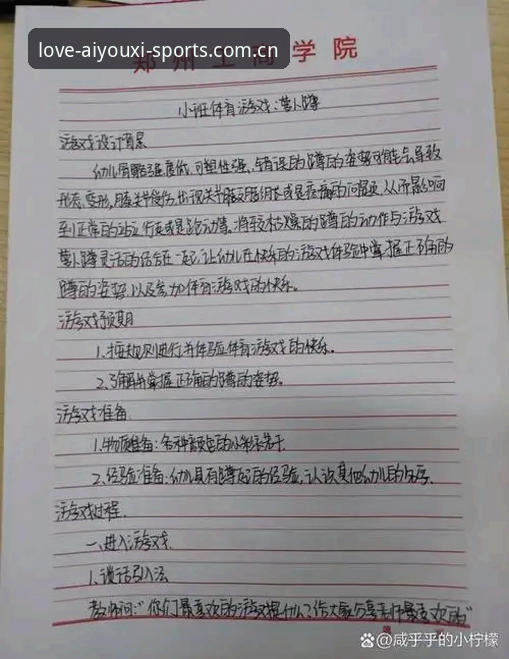 love-aiyouxi-sports.com.cn
郑州工商学院
小班体育游戏:萝卜蹲
游戏设计背景
幼儿骨骼强度低,可塑性强,错误的蹲的姿势可能会导致
形态变形,膝关节损伤,出现关节酸及肌肉拉或是疼痛的问题,从而影响
到正常的站立行走或是跑动等,将较枯燥的蹲的动作与游戏
萝卜蹲灵活的结合在一起,让幼儿在快乐的游戏体验中掌握正确的
蹲的姿势,以及参加体育游戏的快乐。
游戏预期
1.按规则进行并体验体育游戏的快乐。
2.了解并掌握正确的蹲的姿势。
游戏准备
1.物质准备:各种颜色的小彩条若干
2.经验准备:幼儿具有蹲起的经验,认识其他幼儿的名字。
游戏过程
一、进入游戏
1.谈话引入法
教师问:"你们最喜欢的游戏是什么?给大家分享下你最喜欢的"
第
@咸乎乎的小柠檬